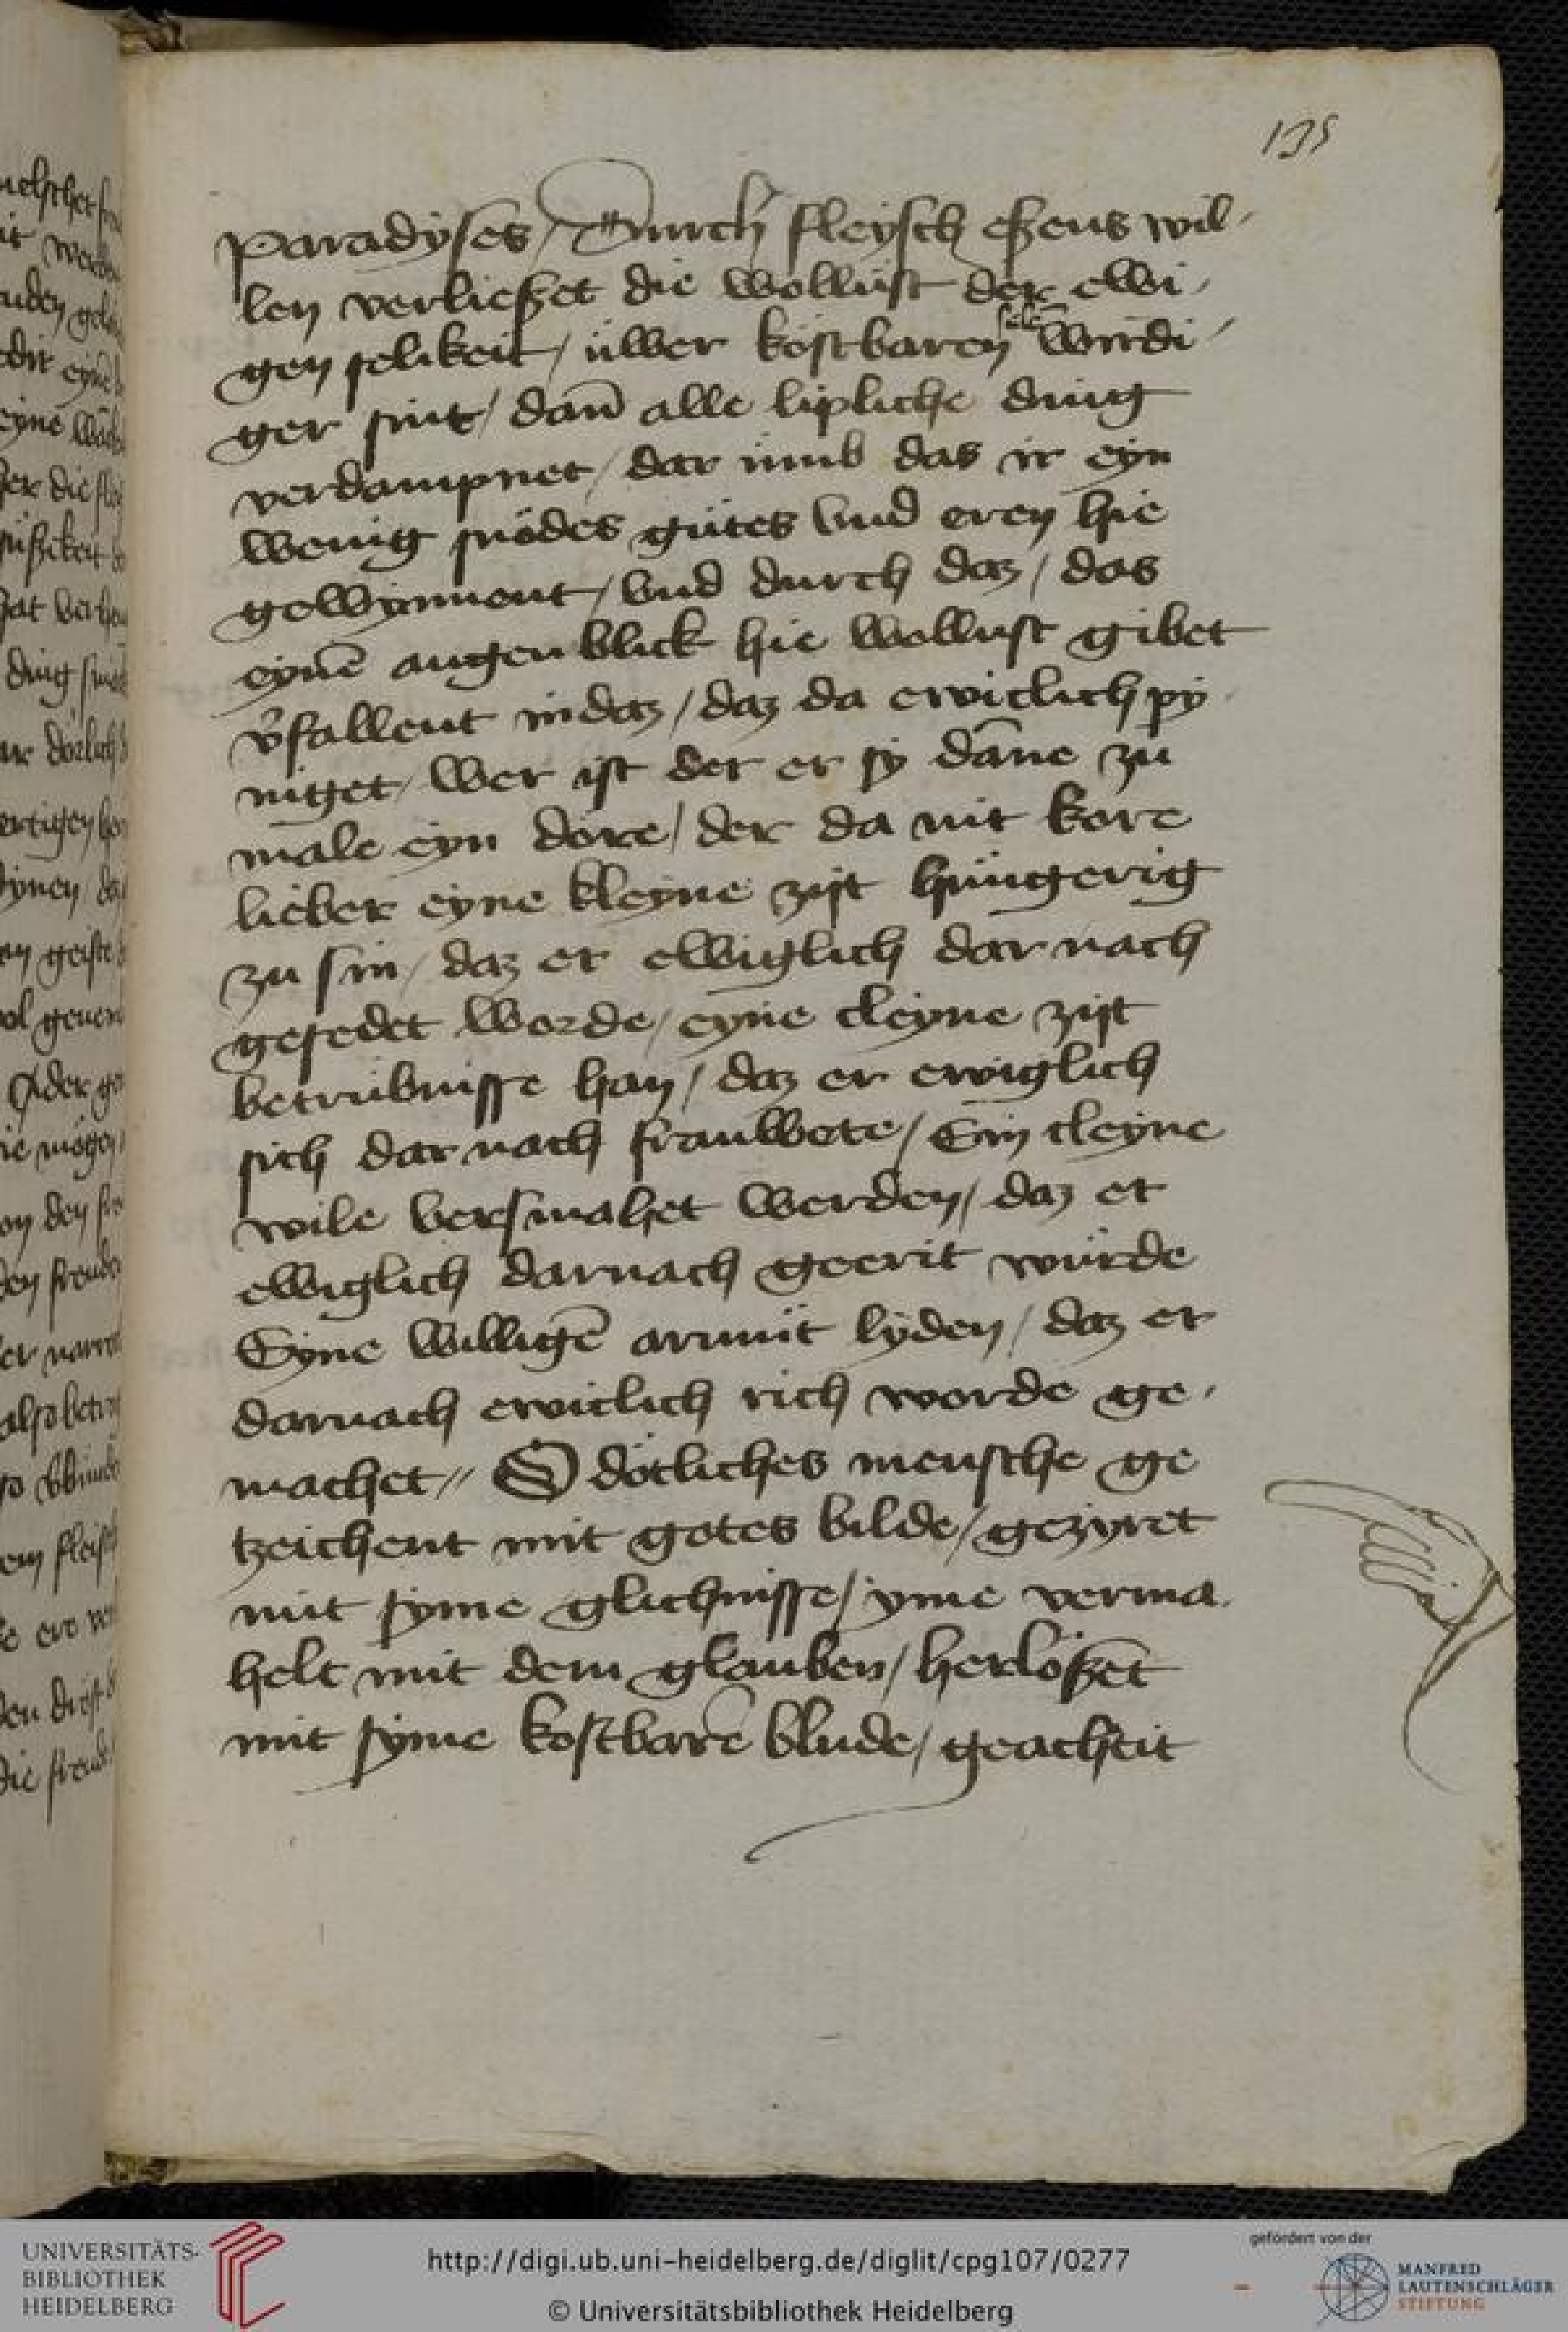 135
paradyses / Durch fleysch eßens wil-
len verließet die wollüst der ewi-
gen selikeit / üwer köstbaren selē wirdi-
ger sint / dañ alle lipliche ding
verdampnet / dar ümb das ir eyn
wenig snödes gütes vnd eren hie
gewynnent / vnd durch daz / das
eynē augenblick hie wollust gibet
v̄fallent in daz / daz da ewiclich py-
niget / wer ist der er sy dāne zü
male eyn dore / der da nit kore
lieber eyne kleyne zijt hüngerig
zu sin / daz er ewiglich dar nach
gesedet worde / eyne cleyne zijt
betrübnisse han / daz er ewiglich
sich dar nach frauwete / Ein cleyne
wile versmahet werden / daz er
ewiglich darnach geerit würde
Eyne willigē armüt lyden / daz er
darnach ewiclich rich worde ge-
machet // O dötliches mensche ge
tzeichent mit gotes bilde / gezyret
mit syme glichnisse / yme verma-
helt mit dem glauben / herlößēt
mit syme kostbarē blude / geacheit
UNIVERSITÄTS-
BIBLIOTHEK
HEIDELBERG
http://digi.ub.uni-heidelberg.de/diglit/cpg107/0277
© Universitätsbibliothek Heidelberg
gefördert von der
MANFRED
LAUTENSCHLÄGER
STIFTUNG